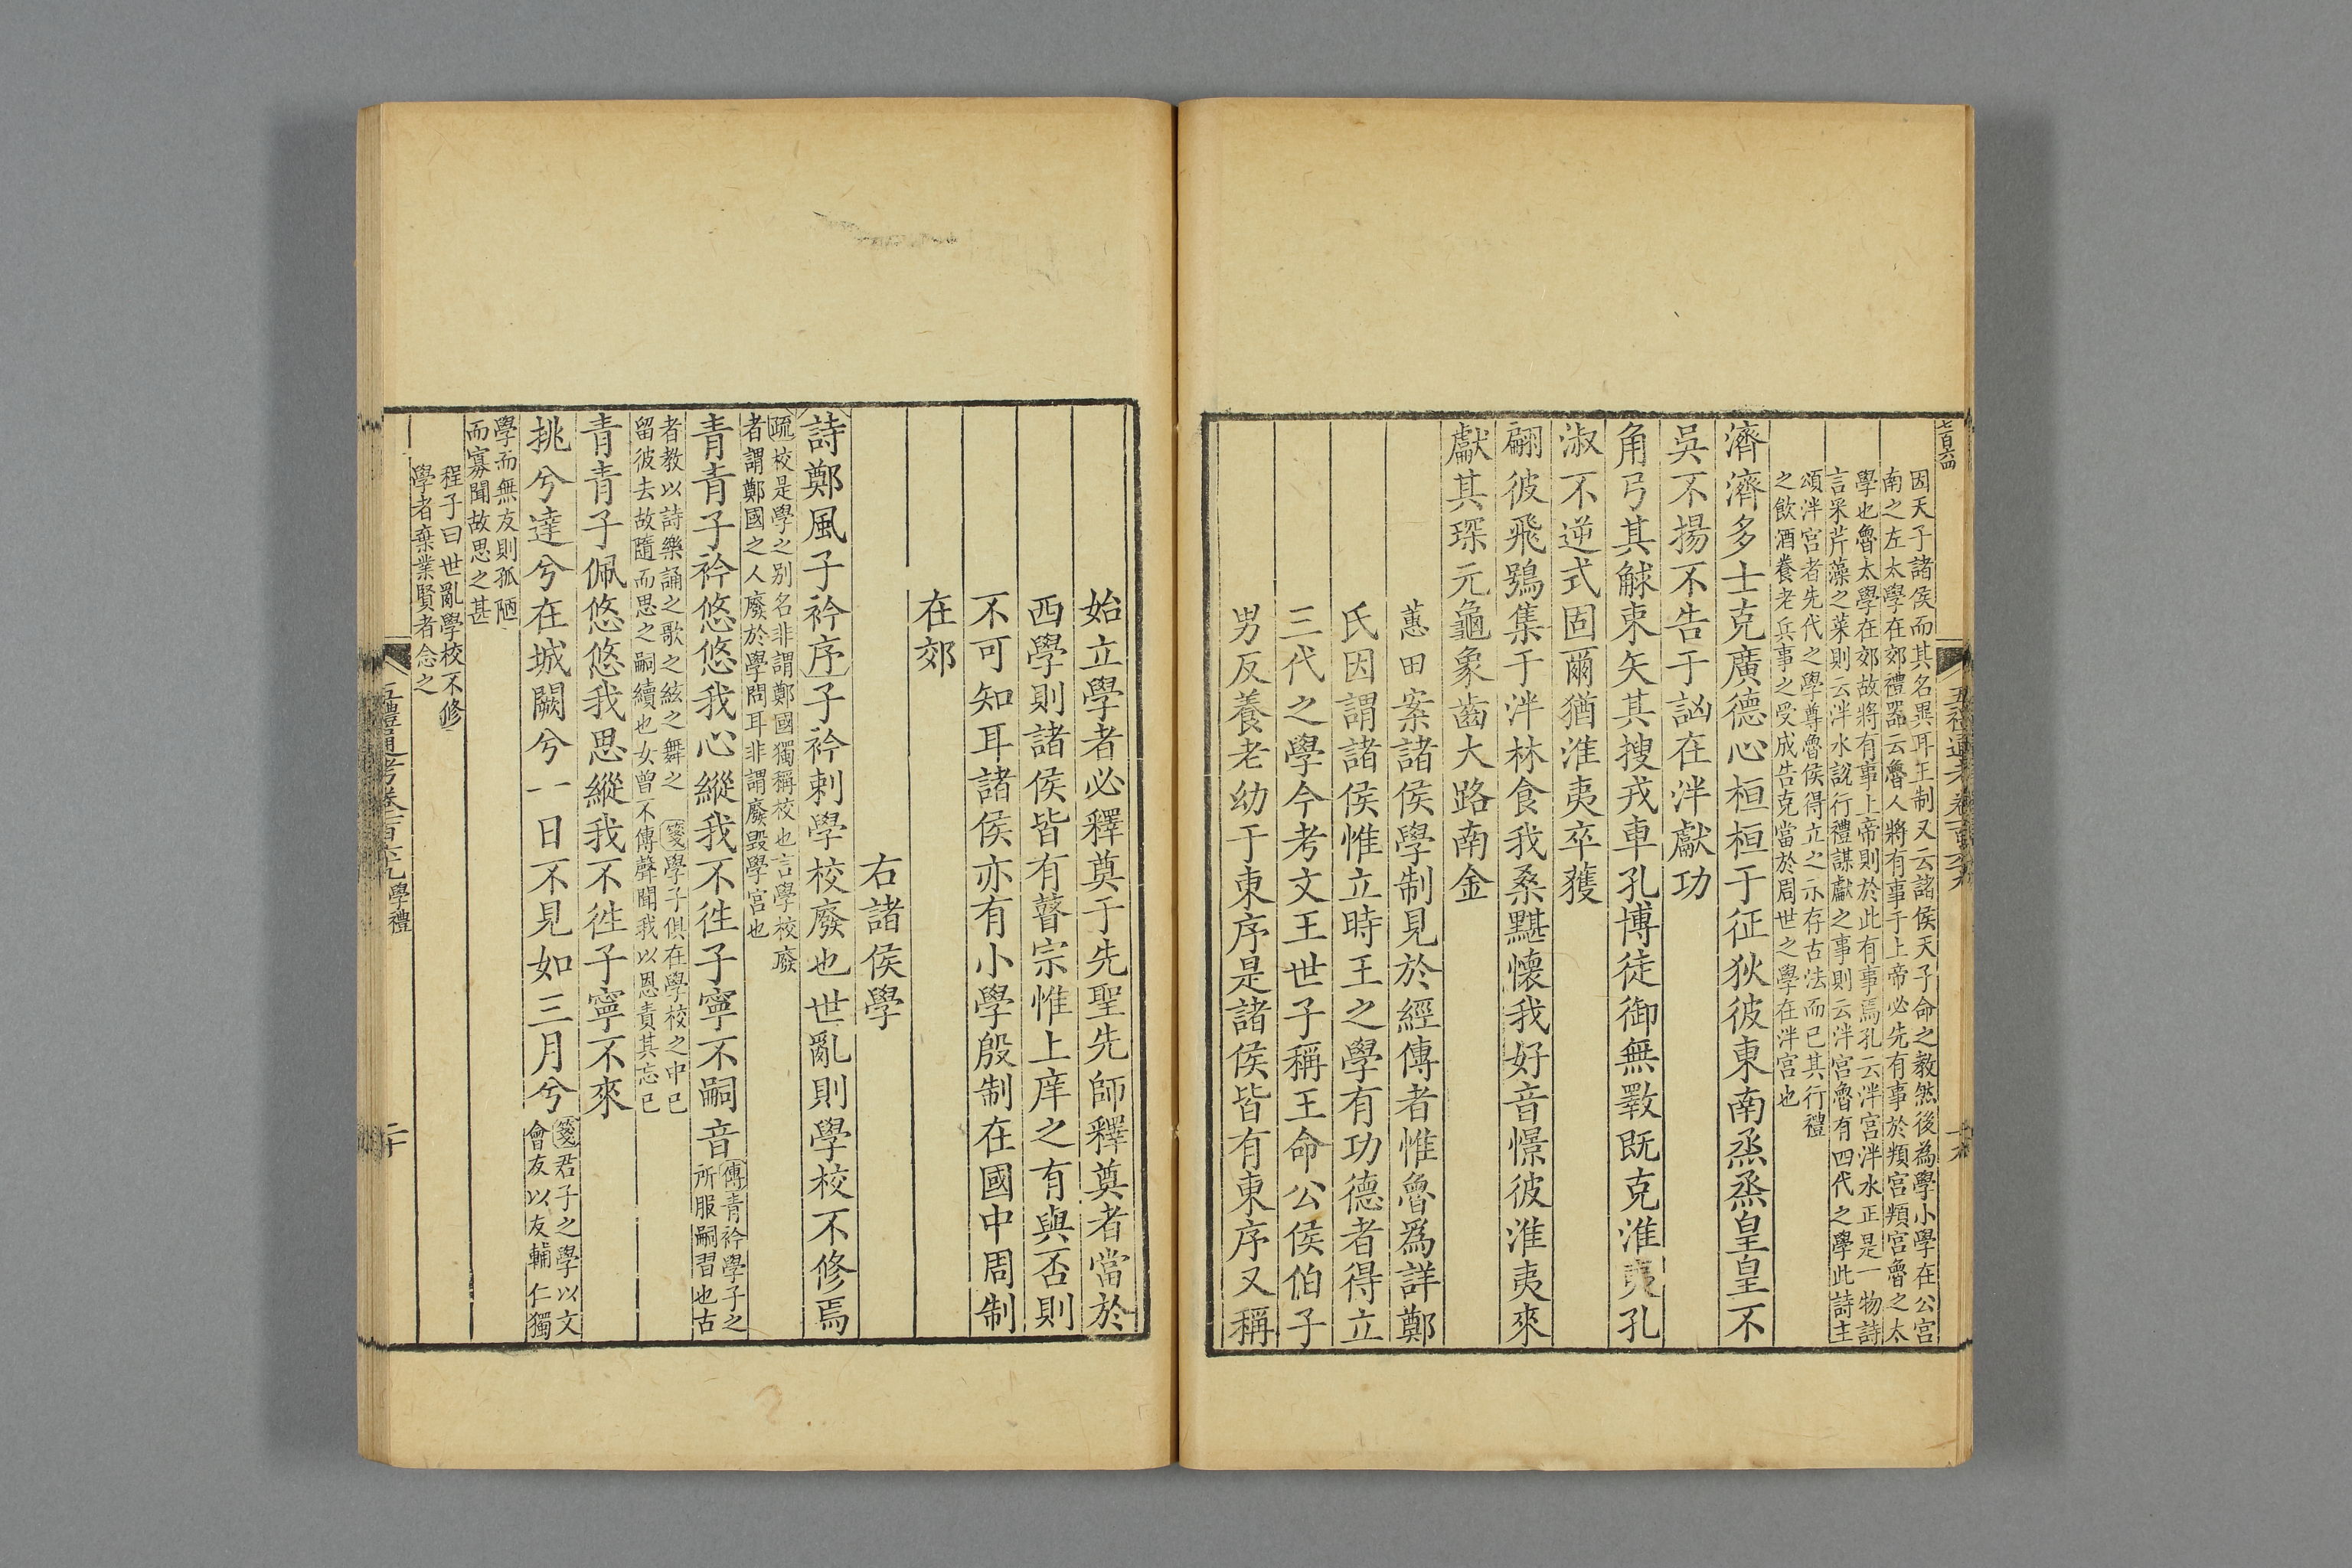 因天子諸侯而其名異耳王制又云諸侯天子命之教然後為學小學在公宮
南之左太學在郊禮器云魯人將有事于上帝必先有事於頖宮頖宮魯之太
學也魯太學在郊故將有事上帝則於此有事焉孔云泮宮泮水正是一物詩
言采芹藻之菜則云泮水說行禮謀獻之事則云泮宮魯有四代之學此詩主
頌泮宮者先代之學尊魯侯得立之示存古法而已其行禮
之飲酒養老兵事之受成告克當於周世之學在泮宮也
濟濟多士克廣德心桓桓于征狄彼東南烝烝皇皇不
吳不揚不告于訩在泮獻功
角弓其觩束矢其搜戎車孔博徒御無斁既克淮夷孔
淑不逆式固爾猶淮夷卒獲
翩彼飛鴞集于泮林食我桑黮懷我好音憬彼淮夷來
獻其琛元龜象齒大路南金
蕙田案諸侯學制見於經傳者惟魯爲詳鄭
氏因謂諸侯惟立時王之學有功德者得立
三代之學今考文王世子稱王命公侯伯子
男反養老幼于東序是諸侯皆有東序又稱
始立學者必釋奠于先聖先師釋奠者當於
西學則諸侯皆有瞽宗惟上庠之有與否則
不可知耳諸侯亦有小學殷制在國中周制
在郊
右諸侯學
詩鄭風子衿序子衿刺學校廢也世亂則學校不修焉
疏校是學之別名非謂鄭國獨稱校也言學校廢
者謂鄭國之人廢於學問耳非謂廢毀學宮也
青青子衿悠悠我心縱我不徃子寧不嗣音
傳青衿學子之
所服嗣習也古
者教以詩樂誦之歌之絃之舞之 箋學子俱在學校之中已
留彼去故隨而思之嗣續也女曾不傳聲聞我以恩責其忘已
青青子佩悠悠我思縱我不徃子寧不來
挑兮達兮在城闕兮一日不見如三月兮
箋君子之學以文
會友以友輔仁獨
學而無友則孤陋
而寡聞故思之甚
程子曰世亂學校不修
學者棄業賢者念之
五禮通考卷一百六十九 學禮
二十